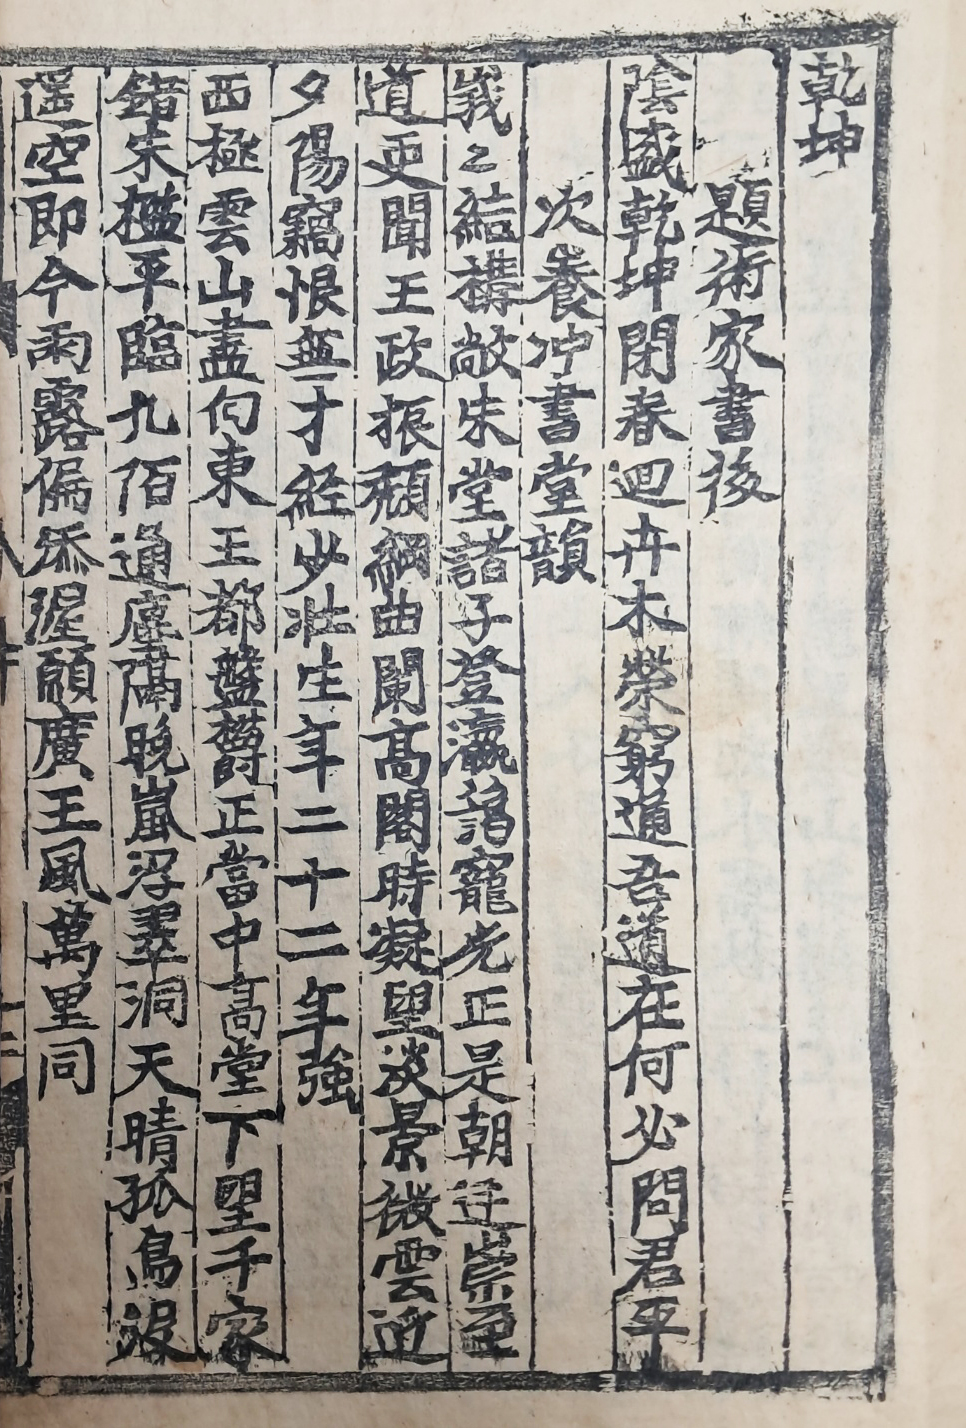 乾坤
題術家書後
陰盛乾坤閉春迴卉木榮窮通吾道在何必問君平
次養冲書堂韻
峩〻結構敞朱堂諸子登瀛藹寵光正是朝廷崇重
道更聞王政振頹綱曲闌高閣時凝望淡景微雲近
夕陽竊恨無才經少壯生年二十二年強
西極雲山盡向東王都盤欝正當中高堂下望千家
錯朱檻平臨九佰通塵隔晚嵐浮翠洞天晴孤鳥沒
遥空即今雨露偏添渥願廣王風萬里同